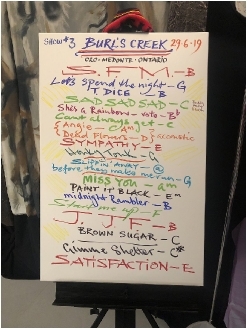 SHOW #3 BURL'S CREEK 29-6-19
ORO-MEDONTE-ONTARIO
S.F.M. - B
Let's spend the night - G
T DICE - B
SAD SAD SAD - C
She's a Rainbow - vote - Bb
Can't always get - C
Angie - (Am)
Dead Flowers - D acoustic
SYMPATHY - E
Honky Tonk - G
SLIPPIN' AWAY -
before they make me run - G
MISS YOU - am
PAINT IT BLACK - em
midnight Rambler - B
Start me up - F
J.J.F - B
BROWN SUGAR - C
Gimme Shelter - C#
SATISFACTION - E